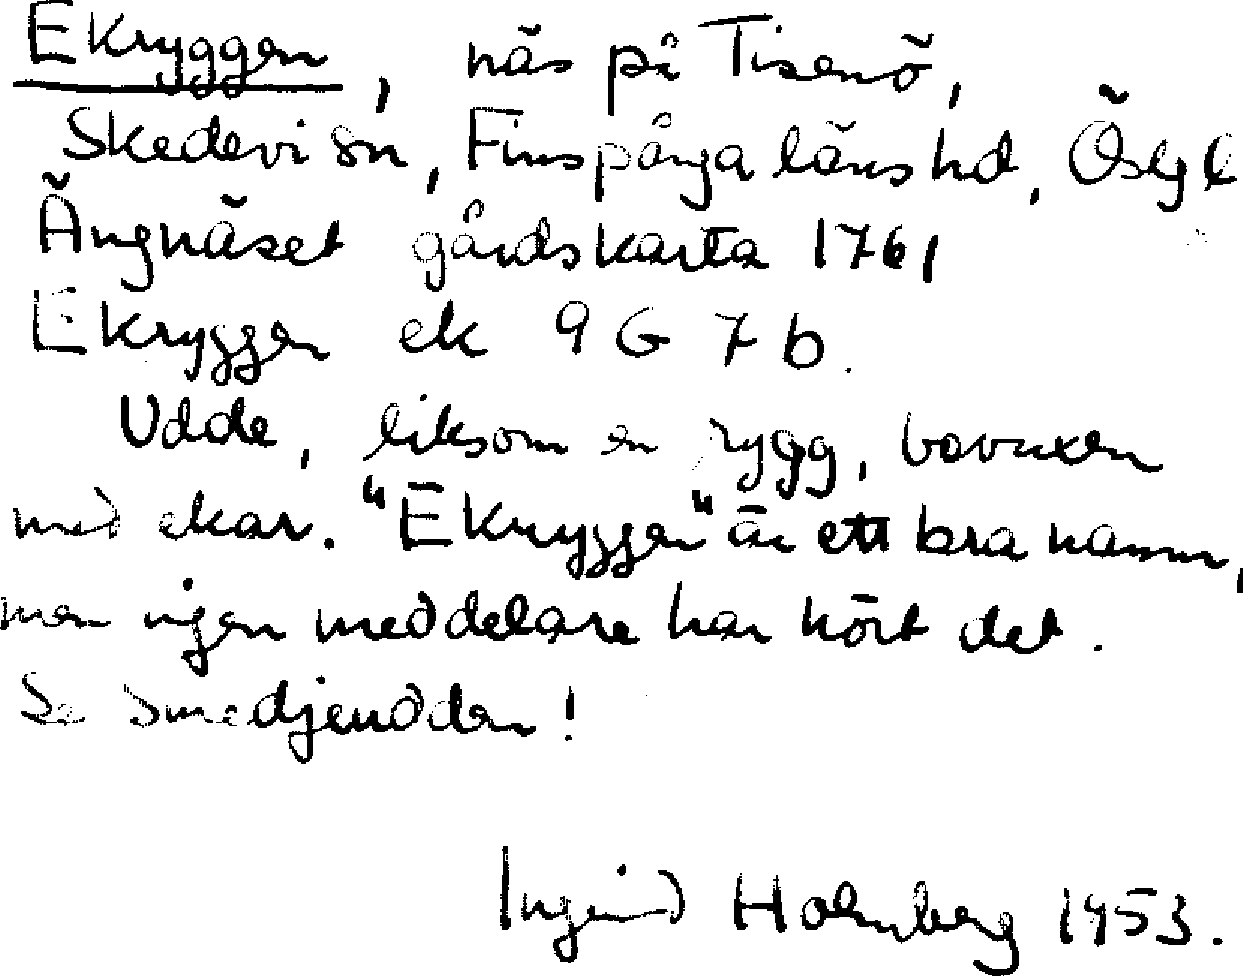 Ekryggen, näs på Tisenö,
Skedevi sn, Finspånga läns hd, Ösgl
Ängnäset gårdskarta 1761
Ekryggen ek 9 G 7 b.
Udde, liksom en rygg, bevuxen
med ekar. "Ekryggen" är ett bra namn,
men ingen meddelare har hört det.
Se Smedjeudden!
Ingrid Holmberg 1953.